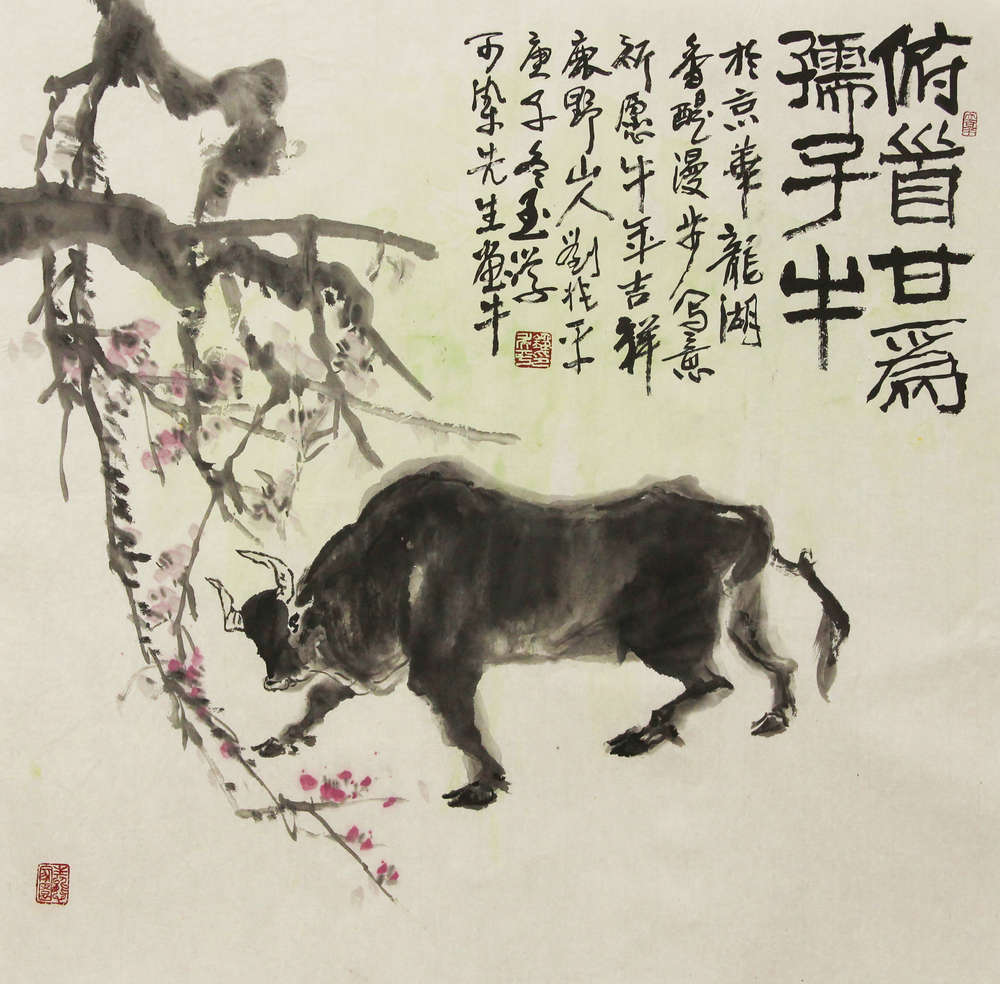 俯首甘為
孺子牛
於京華龍湖
香醍漫步寫意
祈愿牛年吉祥
鹿野山人劉牧平
庚子冬玉學
可染先生画牛